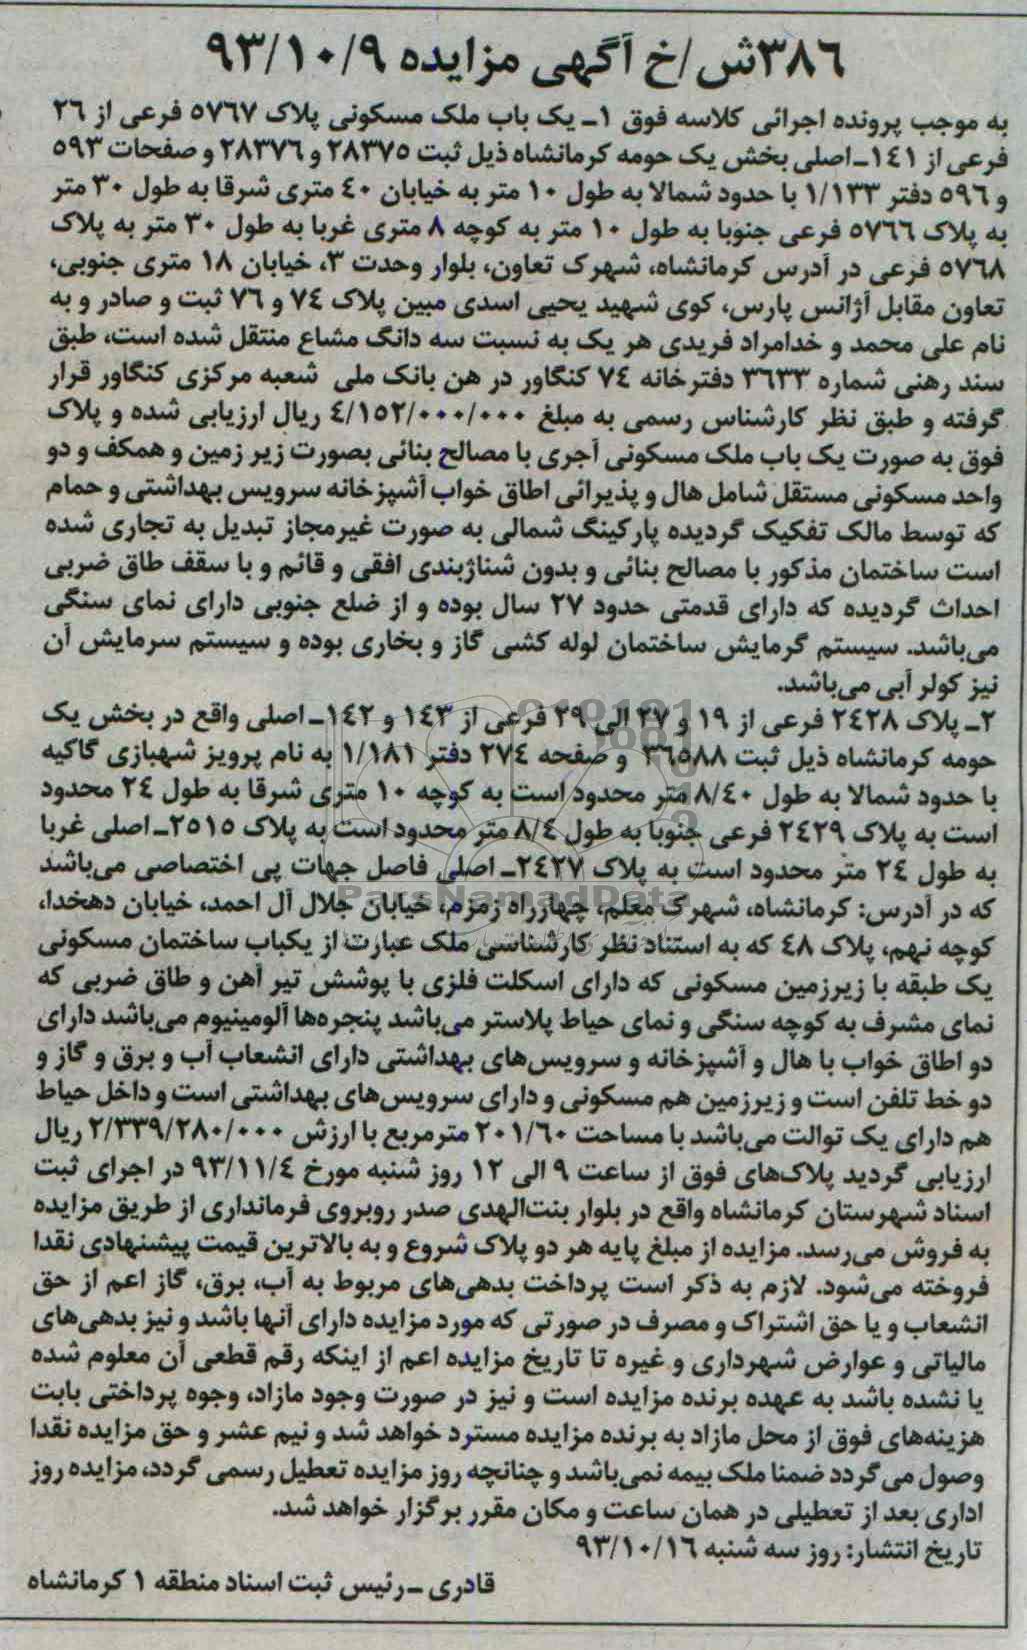 ۳۸۶ش/خ آگهی مزایده ۹۳/۱۰/۹
به موجب پرونده اجرائی کلاسه فوق ۱ـ یک باب ملک مسکونی پلاک ۵۷۶۷ فرعی از ۲۶
فرعی از ۱۴۱ـ اصلی بخش یک حومه کرمانشاه ذیل ثبت ۲۸۳۷۵ و ۲۸۳۷۶ و صفحات ۵۹۳
و ۵۹۶ دفتر ۱/۱۳۳ با حدود شمالا به طول ۱۰ متر به خیابان ۴۰ متری شرقا به طول ۳۰ متر
به پلاک ۵۷۶۶ فرعی جنوبا به طول ۱۰ متر به کوچه ۸ متری غربا به طول ۳۰ متر به پلاک
۵۷۶۸ فرعی در آدرس کرمانشاه، شهرک تعاون، بلوار وحدت ۳، خیابان ۱۸ متری جنوبی،
تعاون مقابل آژانس پارس، کوی شهید یحیی اسدی مبین پلاک ۷۴ و ۷۶ ثبت و صادر و به
نام علی محمد و خدامراد فریدی هر یک به نسبت سه دانگ مشاع منتقل شده است، طبق
سند رهنی شماره ۳۶۳۳ دفترخانه ۷۴ کنگاور در هن بانک ملی شعبه مرکزی کنگاور قرار
گرفته و طبق نظر کارشناس رسمی به مبلغ ۴/۱۵۲/۰۰۰/۰۰۰ ریال ارزیابی شده و پلاک
فوق به صورت یک باب ملک مسکونی آجری با مصالح بنائی بصورت زیر زمین و همکف و دو
واحد مسکونی مستقل شامل هال و پذیرائی اطاق خواب آشپزخانه سرویس بهداشتی و حمام
که توسط مالک تفکیک گردیده پارکینگ شمالی به صورت غیرمجاز تبدیل به تجاری شده
است ساختمان مذکور با مصالح بنائی و بدون شناژبندی افقی و قائم و با سقف طاق ضربی
احداث گردیده که دارای قدمتی حدود ۲۷ سال بوده و از ضلع جنوبی دارای نمای سنگی
می‌باشد. سیستم گرمایش ساختمان لوله کشی گاز و بخاری بوده و سیستم سرمایش آن
نیز کولر آبی می‌باشد.
۲ـ پلاک ۲۴۲۸ فرعی از ۱۹ و ۲۷ الی ۲۹ فرعی از ۱۴۳ و ۱۴۲ـ اصلی واقع در بخش یک
حومه کرمانشاه ذیل ثبت ۳۶۵۸۸ و صفحه ۲۷۴ دفتر ۱/۱۸۱ به نام پرویز شهبازی گاکیه
با حدود شمالا به طول ۸/۴۰ متر محدود است به کوچه ۱۰ متری شرقا به طول ۲۴ محدود
است به پلاک ۲۴۲۹ فرعی جنوبا به طول ۸/۴ متر محدود است به پلاک ۲۵۱۵ـ اصلی غربا
به طول ۲۴ متر محدود است به پلاک ۲۴۲۷ـ اصلی فاصل جهات پی اختصاصی می‌باشد
که در آدرس: کرمانشاه، شهرک معلم، چهارراه زمزم، خیابان جلال آل احمد، خیابان دهخدا،
کوچه نهم، پلاک ۴۸ که به استناد نظر کارشناسی ملک عبارت از یکباب ساختمان مسکونی
یک طبقه با زیرزمین مسکونی که دارای اسکلت فلزی با پوشش تیر آهن و طاق ضربی که
نمای مشرف به کوچه سنگی و نمای حیاط پلاستر می‌باشد پنجره‌ها آلومینیوم می‌باشد دارای
دو اطاق خواب با هال و آشپزخانه و سرویس‌های بهداشتی دارای انشعاب آب و برق و گاز و
دو خط تلفن است و زیرزمین هم مسکونی و دارای سرویس‌های بهداشتی است و داخل حیاط
هم دارای یک توالت می‌باشد با مساحت ۲۰۱/۶۰ مترمربع با ارزش ۲/۳۳۹/۲۸۰/۰۰۰ ریال
ارزیابی گردید پلاک‌های فوق از ساعت ۹ الی ۱۲ روز شنبه مورخ ۹۳/۱۱/۴ در اجرای ثبت
اسناد شهرستان کرمانشاه واقع در بلوار بنت‌الهدی صدر روبروی فرمانداری از طریق مزایده
به فروش می‌رسد. مزایده از مبلغ پایه هر دو پلاک شروع و به بالاترین قیمت پیشنهادی نقدا
فروخته می‌شود. لازم به ذکر است پرداخت بدهی‌های مربوط به آب، برق، گاز اعم از حق
انشعاب و یا حق اشتراک و مصرف در صورتی که مورد مزایده دارای آنها باشد و نیز بدهی‌های
مالیاتی و عوارض شهرداری و غیره تا تاریخ مزایده اعم از اینکه رقم قطعی آن معلوم شده
یا نشده باشد به عهده برنده مزایده است و نیز در صورت وجود مازاد، وجوه پرداختی بابت
هزینه‌های فوق از محل مازاد به برنده مزایده مسترد خواهد شد و نیم عشر و حق مزایده نقدا
وصول می‌گردد ضمنا ملک بیمه نمی‌باشد و چنانچه روز مزایده تعطیل رسمی گردد، مزایده روز
اداری بعد از تعطیلی در همان ساعت و مکان مقرر برگزار خواهد شد.
تاریخ انتشار: روز سه شنبه ۹۳/۱۰/۱۶
قادری ـ رئیس ثبت اسناد منطقه ۱ کرمانشاه
ParsNamadData